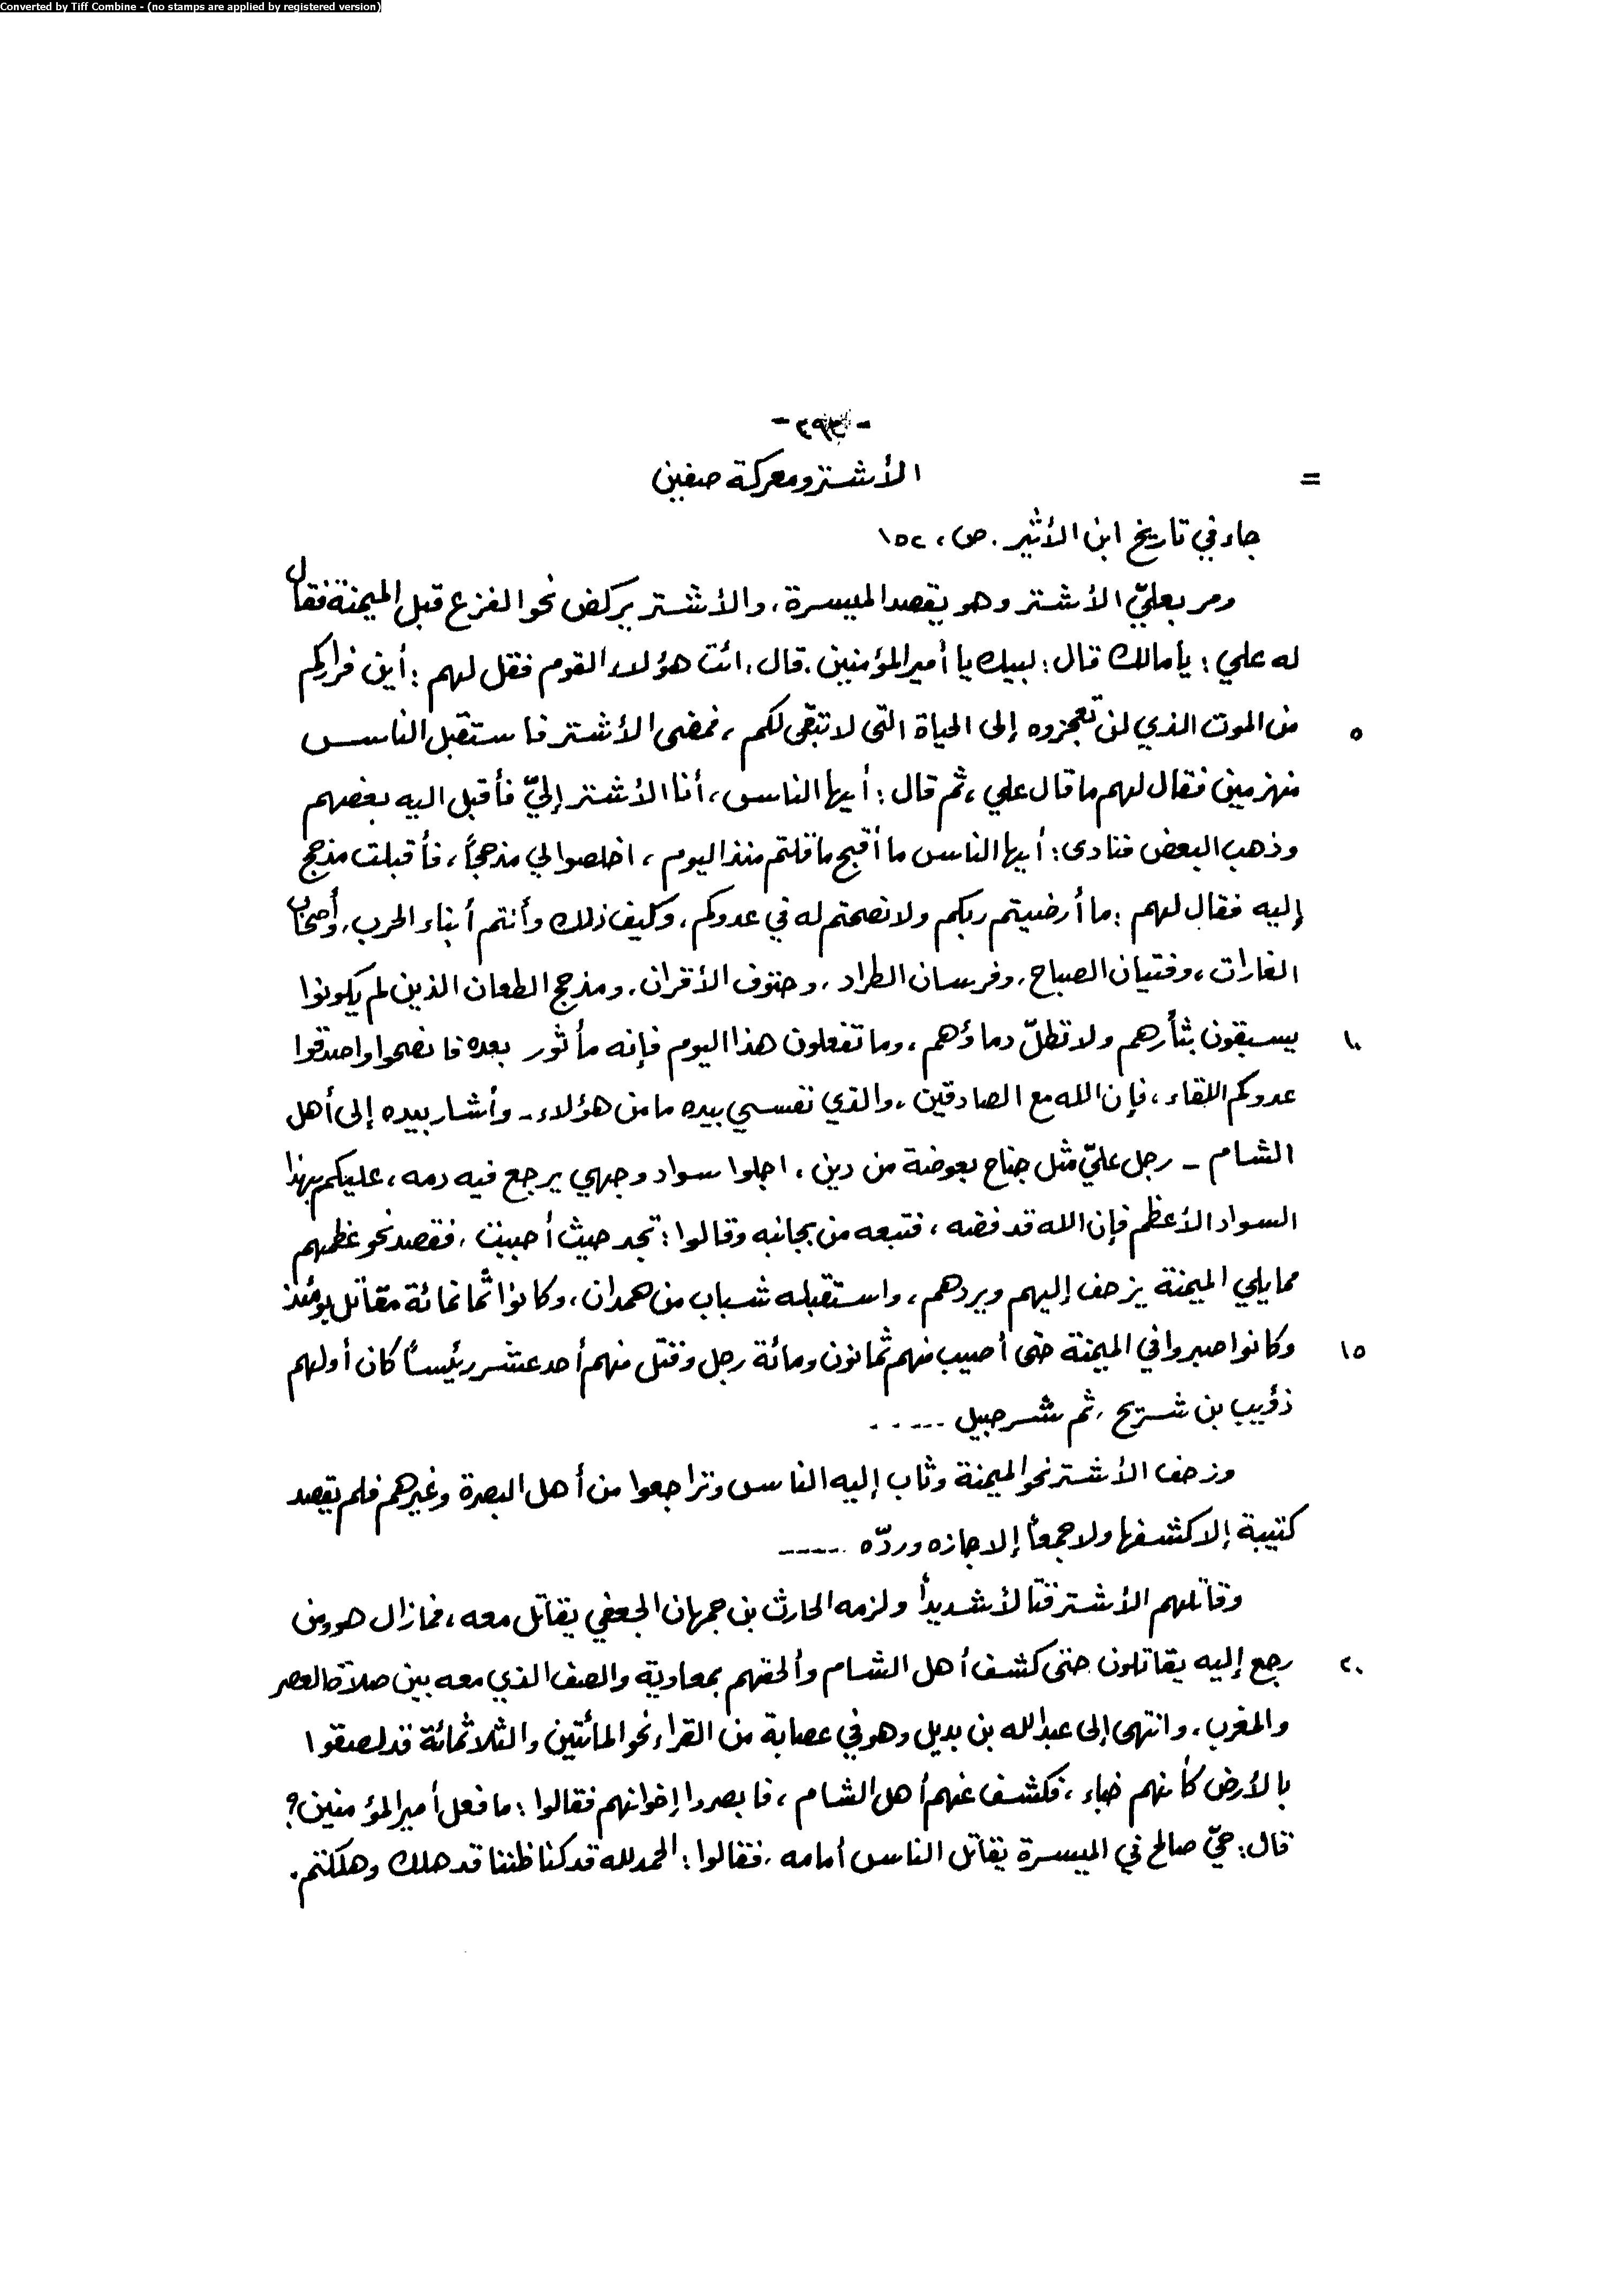 Converted by Tiff Combine - (no stamps are applied by registered version)
= الأشتر ومعركة صفين
جاء في تاريخ ابن الأثير. ص، ١٥٢
ومر بعليّ الأشتر وهو يقصد الميسرة، والأشتر يركض نحو الفزع قبل الميمنة فقال
له علي: يا مالك قال: لبيك يا أمير المؤمنين. قال. ائت هؤلاء القوم فقل لهم: أين فراركم
٥ من الموت الذي لن تعجزوه إلى الحياة التي لا تبقى لكم، فمضى الأشتر فاستقبل الناس
منهزمين فقال لهم ما قال علي، ثم قال: أيها الناس، أنا الأشتر إليّ فأقبل اليه بعضهم
وذهب البعض فنادى: أيها الناس ما أقبح ما قلتم منذ اليوم، اخلصوا لي مذحجاً، فأقبلت مذحج
إليه فقال لهم: ما أرضيتم ربكم ولا نصحتم له في عدوكم، وكيف ذلك وأنتم أبناء الحرب، وأصحاب
الغارات، وفتيان الصباح، وفرسان الطراد، وحتوف الأقران، ومذحج الطعان الذين لم يكونوا
١٠ يسبقون بثأرهم ولا تطلّ دماؤهم، وما تفعلون هذا اليوم فإنه مأثور بعده فانصحوا واصدقوا
عدوكم اللقاء، فإن الله مع الصادقين، والذي نفسي بيده ما من هؤلاء - وأشار بيده إلى أهل
الشام - رجل عليّ مثل جناح بعوضة من دين، اجلوا سواد وجهي يرجع فيه دمه، عليكم بهذا
السواد الأعظم فإن الله قد فضه، فتبعه من بجانبه وقالوا: تجد حيث أحببت، فقصد نحو عظمهم
مما يلي الميمنة يزحف إليهم ويردهم، واستقبله شباب من همدان، وكانوا ثمانمائة مقاتل يومئذ
١٥ وكانوا صبروا في الميمنة حتى أصيب منهم ثمانون ومائة رجل وقتل منهم أحد عشر رئيساً كان أولهم
ذؤيب بن شريح، ثم شرحبيل .....
وزحف الأشتر نحو الميمنة وثاب إليه الناس وتراجعوا من أهل البصرة وغيرهم فلم يقصد
كتيبة إلا كشفها ولا جمعاً إلا جازه وردّه .....
وقاتلهم الأشتر قتالاً شديداً ولزمه الحارث بن جمهان الجعفي يقاتل معه، فما زال هو ومن
٢٠ رجع إليه يقاتلون حتى كشف أهل الشام وألحقهم بمعاوية والصف الذي معه بين صلاة العصر
والمغرب، وانتهى إلى عبدالله بن بديل وهو في عصابة من القراء نحو المائتين والثلاثمائة قد لصقوا
بالأرض كأنهم خباء، فكشف عنهم أهل الشام، فابصروا إخوانهم فقالوا: ما فعل أمير المؤمنين؟
قال: حيّ صالح في الميسرة يقاتل الناس أمامه، فقالوا: الحمدلله قد كنا ظننا قد هلك وهلكتم.